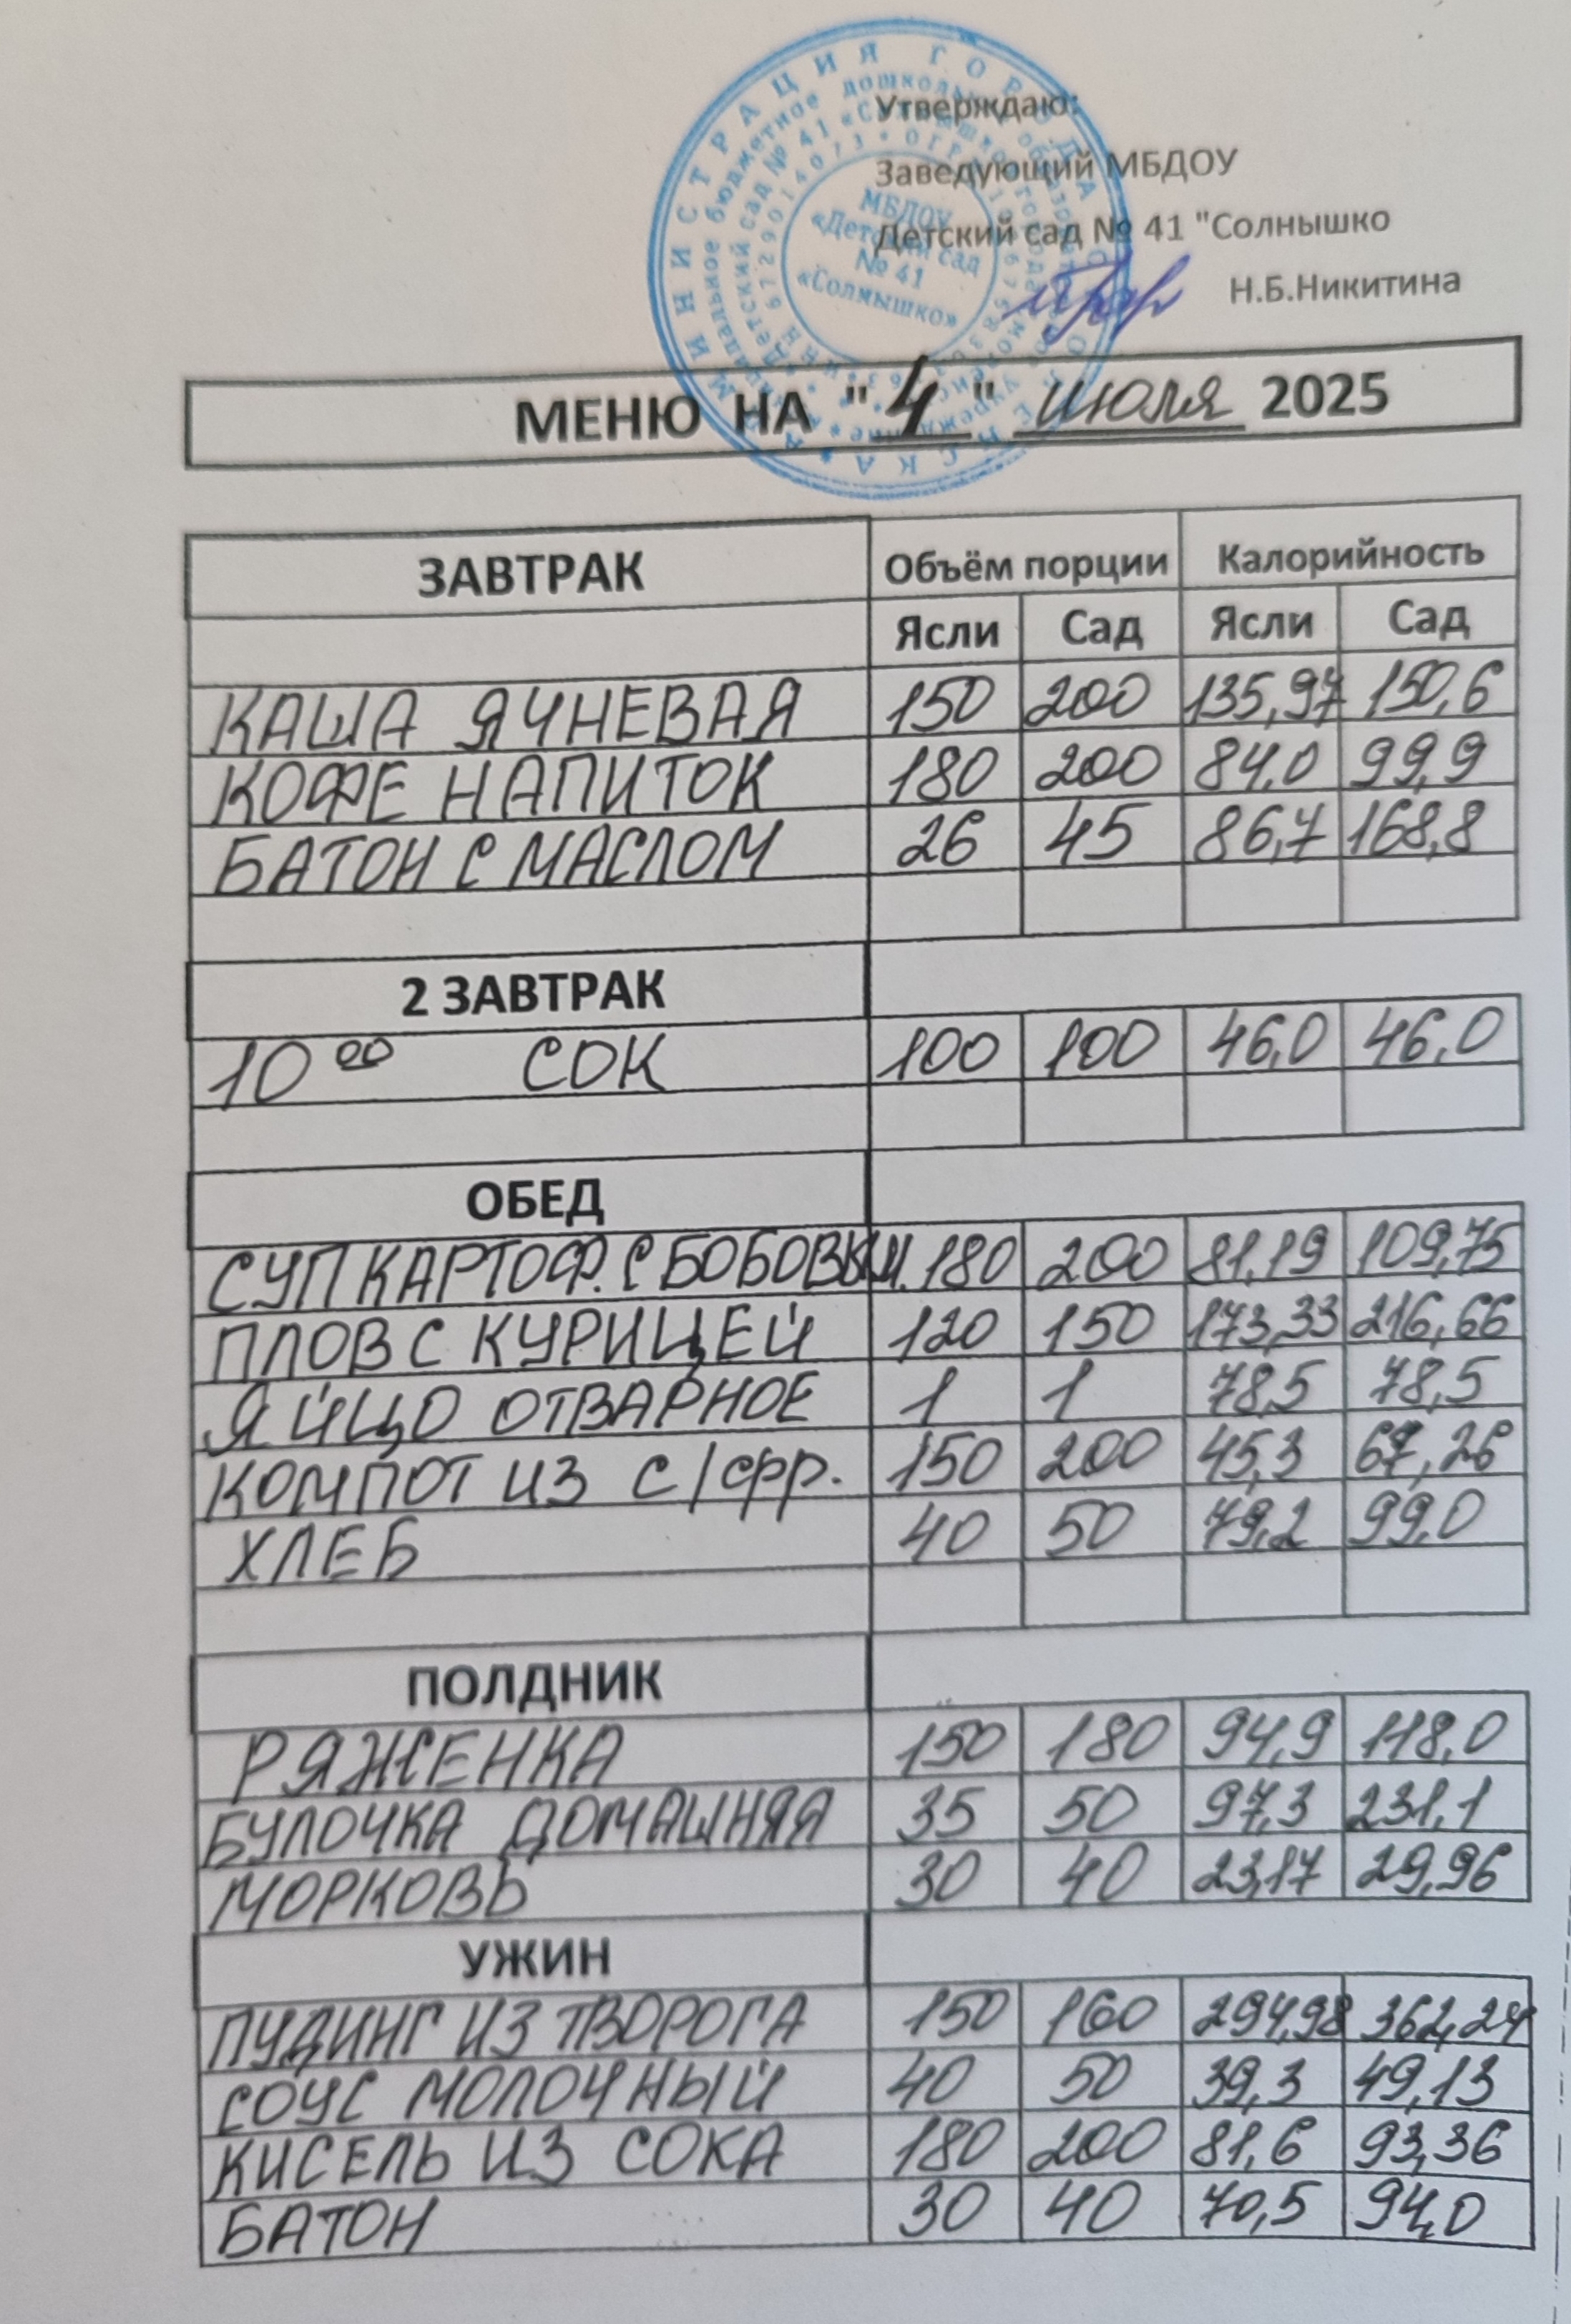 Утверждаю:
Заведующий МБДОУ
Детский сад № 41 "Солнышко
Н.Б.Никитина
МБДОУ
«Детский сад
№ 41
«Солнышко»
МЕНЮ НА "4" июля 2025
ЗАВТРАК Объём порции Калорийность
Ясли Сад Ясли Сад
КАША ЯЧНЕВАЯ 150 200 135,97 150,6
КОФЕ НАПИТОК 180 200 84,0 99,9
БАТОН С МАСЛОМ 26 45 86,7 168,8
2 ЗАВТРАК
10 00 СОК 100 100 46,0 46,0
ОБЕД
СУП КАРТОФ. С БОБОВЫМ. 180 200 81,19 109,75
ПЛОВ С КУРИЦЕЙ 120 150 173,33 216,66
ЯЙЦО ОТВАРНОЕ 1 1 78,5 78,5
КОМПОТ ИЗ С/фр. 150 200 45,3 67,26
ХЛЕБ 40 50 79,2 99,0
ПОЛДНИК
РЯЖЕНКА 150 180 94,9 118,0
БУЛОЧКА ДОМАШНЯЯ 35 50 97,3 231,1
МОРКОВЬ 30 40 23,17 29,96
УЖИН
ПУДИНГ ИЗ ТВОРОГА 150 160 294,98 362,24
СОУС МОЛОЧНЫЙ 40 50 39,3 49,13
КИСЕЛЬ ИЗ СОКА 180 200 81,6 93,36
БАТОН 30 40 70,5 94,0